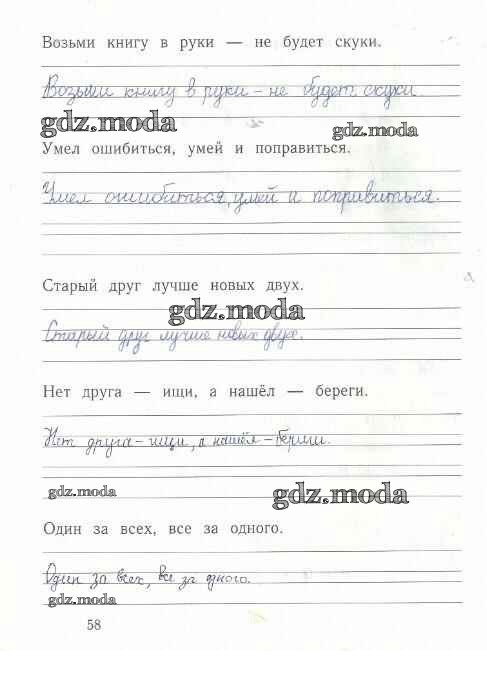 Возьми книгу в руки — не будет скуки.
Возьми книгу в руки - не будет скуки
gdz.moda
gdz.moda
Умел ошибиться, умей и поправиться.
Умел ошибиться, умей и поправиться.
Старый друг лучше новых двух.
gdz.moda
Старый друг лучше новых двух.
Нет друга — ищи, а нашёл — береги.
Нет друга - ищи, а нашёл -
gdz.moda
gdz.moda
Один за всех, все за одного.
Один за всех, все за одного.
gdz.moda
58